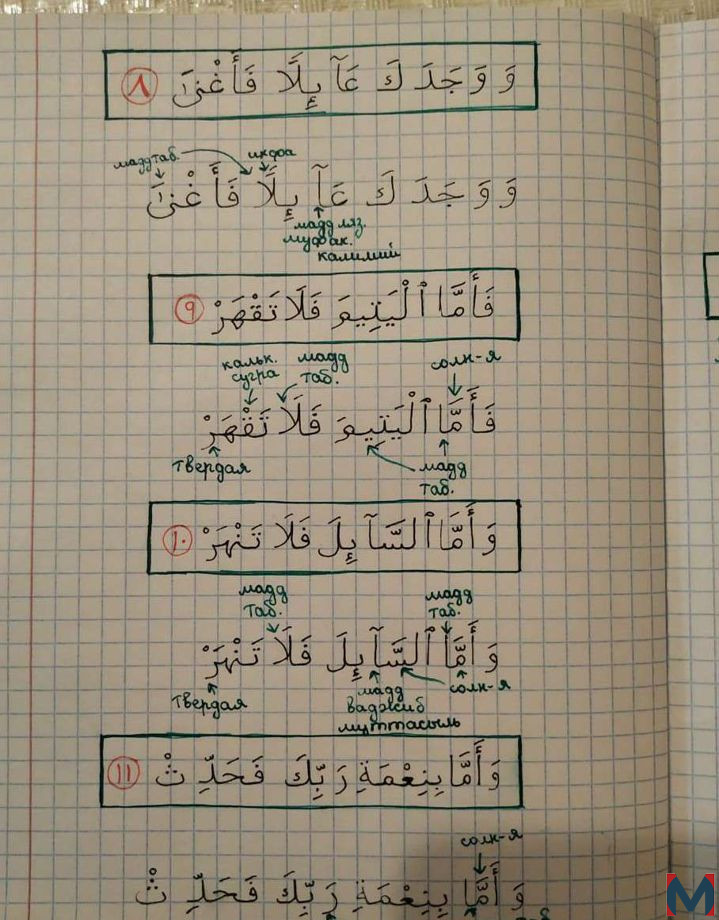 وَ وَجَدَ كَ عَآ ىِٕلًا فَأَغْنَىٰ ٨
маддтаб. ихфа
وَ وَ جَدَ كَ عَآ ىِٕلًا فَأَغْنَىٰ
мадд ляз.
калимий
فَأَمَّا ٱلْيَتِيمَ فَلَا تَقْهَرْ ٩
кальк. мадд солн-я
сугра таб.
فَأَمَّا ٱلْيَتِيمَ فَلَا تَقْهَرْ
твердая мадд
таб.
وَ أَمَّا ٱلسَّآىِٕلَ فَلَا تَنْهَرْ ١٠
мадд мадд
таб. таб.
وَ أَمَّا ٱلسَّآىِٕلَ فَلَا تَنْهَرْ
твердая мадд солн-я
ваджиб
муттасыль
وَ أَمَّا بِنِعْمَةِ رَبِّكَ فَحَدِّ ثْ ١١
солн-я
وَ أَمَّا بِنِعْمَةِ رَبِّكَ فَحَدِّ ثْ
M